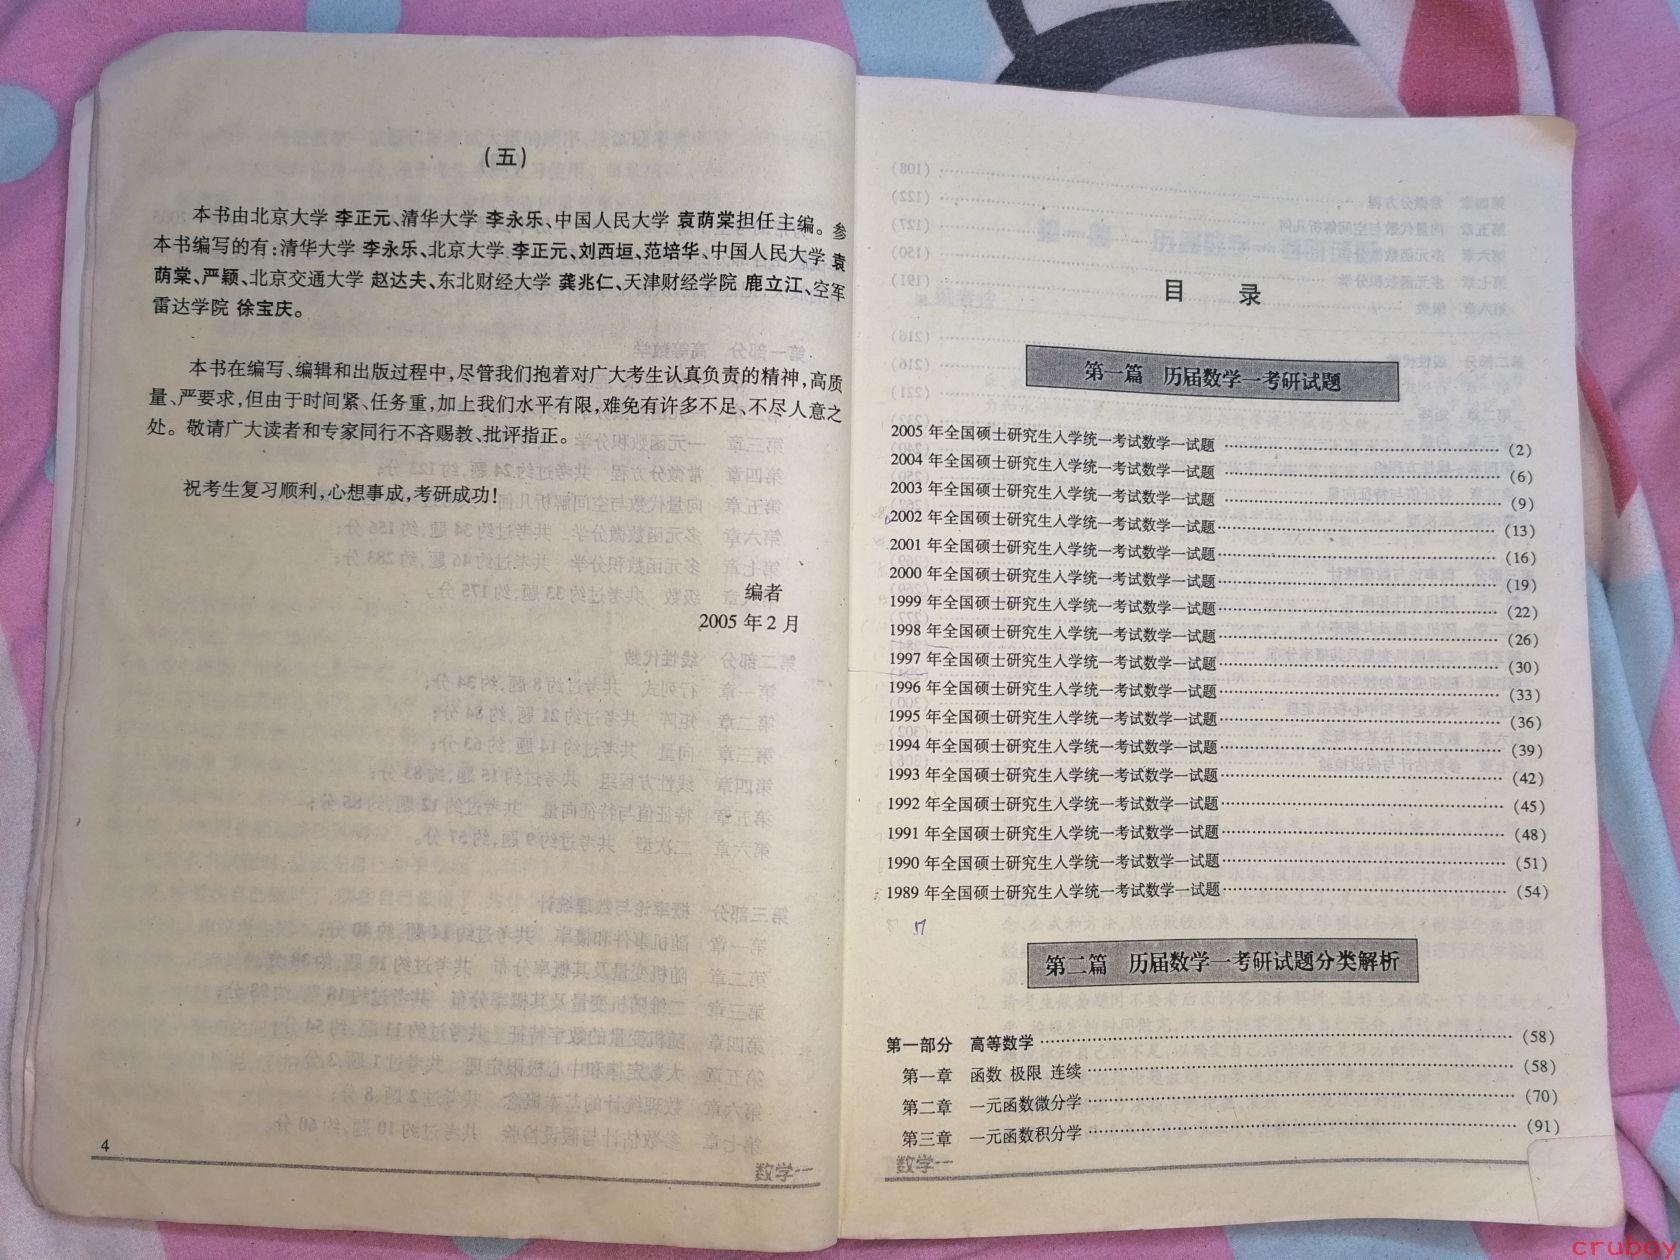 (五)
本书由北京大学 李正元、清华大学 李永乐、中国人民大学 袁荫棠担任主编。参
本书编写的有:清华大学 李永乐、北京大学 李正元、刘西垣、范培华、中国人民大学 袁
荫棠、严颖、北京交通大学 赵达夫、东北财经大学 龚兆仁、天津财经学院 鹿立江、空军
雷达学院 徐宝庆。
本书在编写、编辑和出版过程中,尽管我们抱着对广大考生认真负责的精神,高质
量、严要求,但由于时间紧、任务重,加上我们水平有限,难免有许多不足、不尽人意之
处。敬请广大读者和专家同行不吝赐教、批评指正。
祝考生复习顺利,心想事成,考研成功!
编者
2005 年 2 月
4
数学一
目 录
第一篇 历届数学一考研试题
2005 年全国硕士研究生入学统一考试数学一试题 (2)
2004 年全国硕士研究生入学统一考试数学一试题 (6)
2003 年全国硕士研究生入学统一考试数学一试题 (9)
2002 年全国硕士研究生入学统一考试数学一试题 (13)
2001 年全国硕士研究生入学统一考试数学一试题 (16)
2000 年全国硕士研究生入学统一考试数学一试题 (19)
1999 年全国硕士研究生入学统一考试数学一试题 (22)
1998 年全国硕士研究生入学统一考试数学一试题 (26)
1997 年全国硕士研究生入学统一考试数学一试题 (30)
1996 年全国硕士研究生入学统一考试数学一试题 (33)
1995 年全国硕士研究生入学统一考试数学一试题 (36)
1994 年全国硕士研究生入学统一考试数学一试题 (39)
1993 年全国硕士研究生入学统一考试数学一试题 (42)
1992 年全国硕士研究生入学统一考试数学一试题 (45)
1991 年全国硕士研究生入学统一考试数学一试题 (48)
1990 年全国硕士研究生入学统一考试数学一试题 (51)
1989 年全国硕士研究生入学统一考试数学一试题 (54)
17
第二篇 历届数学一考研试题分类解析
第一部分 高等数学 (58)
第一章 函数 极限 连续 (58)
第二章 一元函数微分学 (70)
第三章 一元函数积分学 (91)
数学一
cruboy